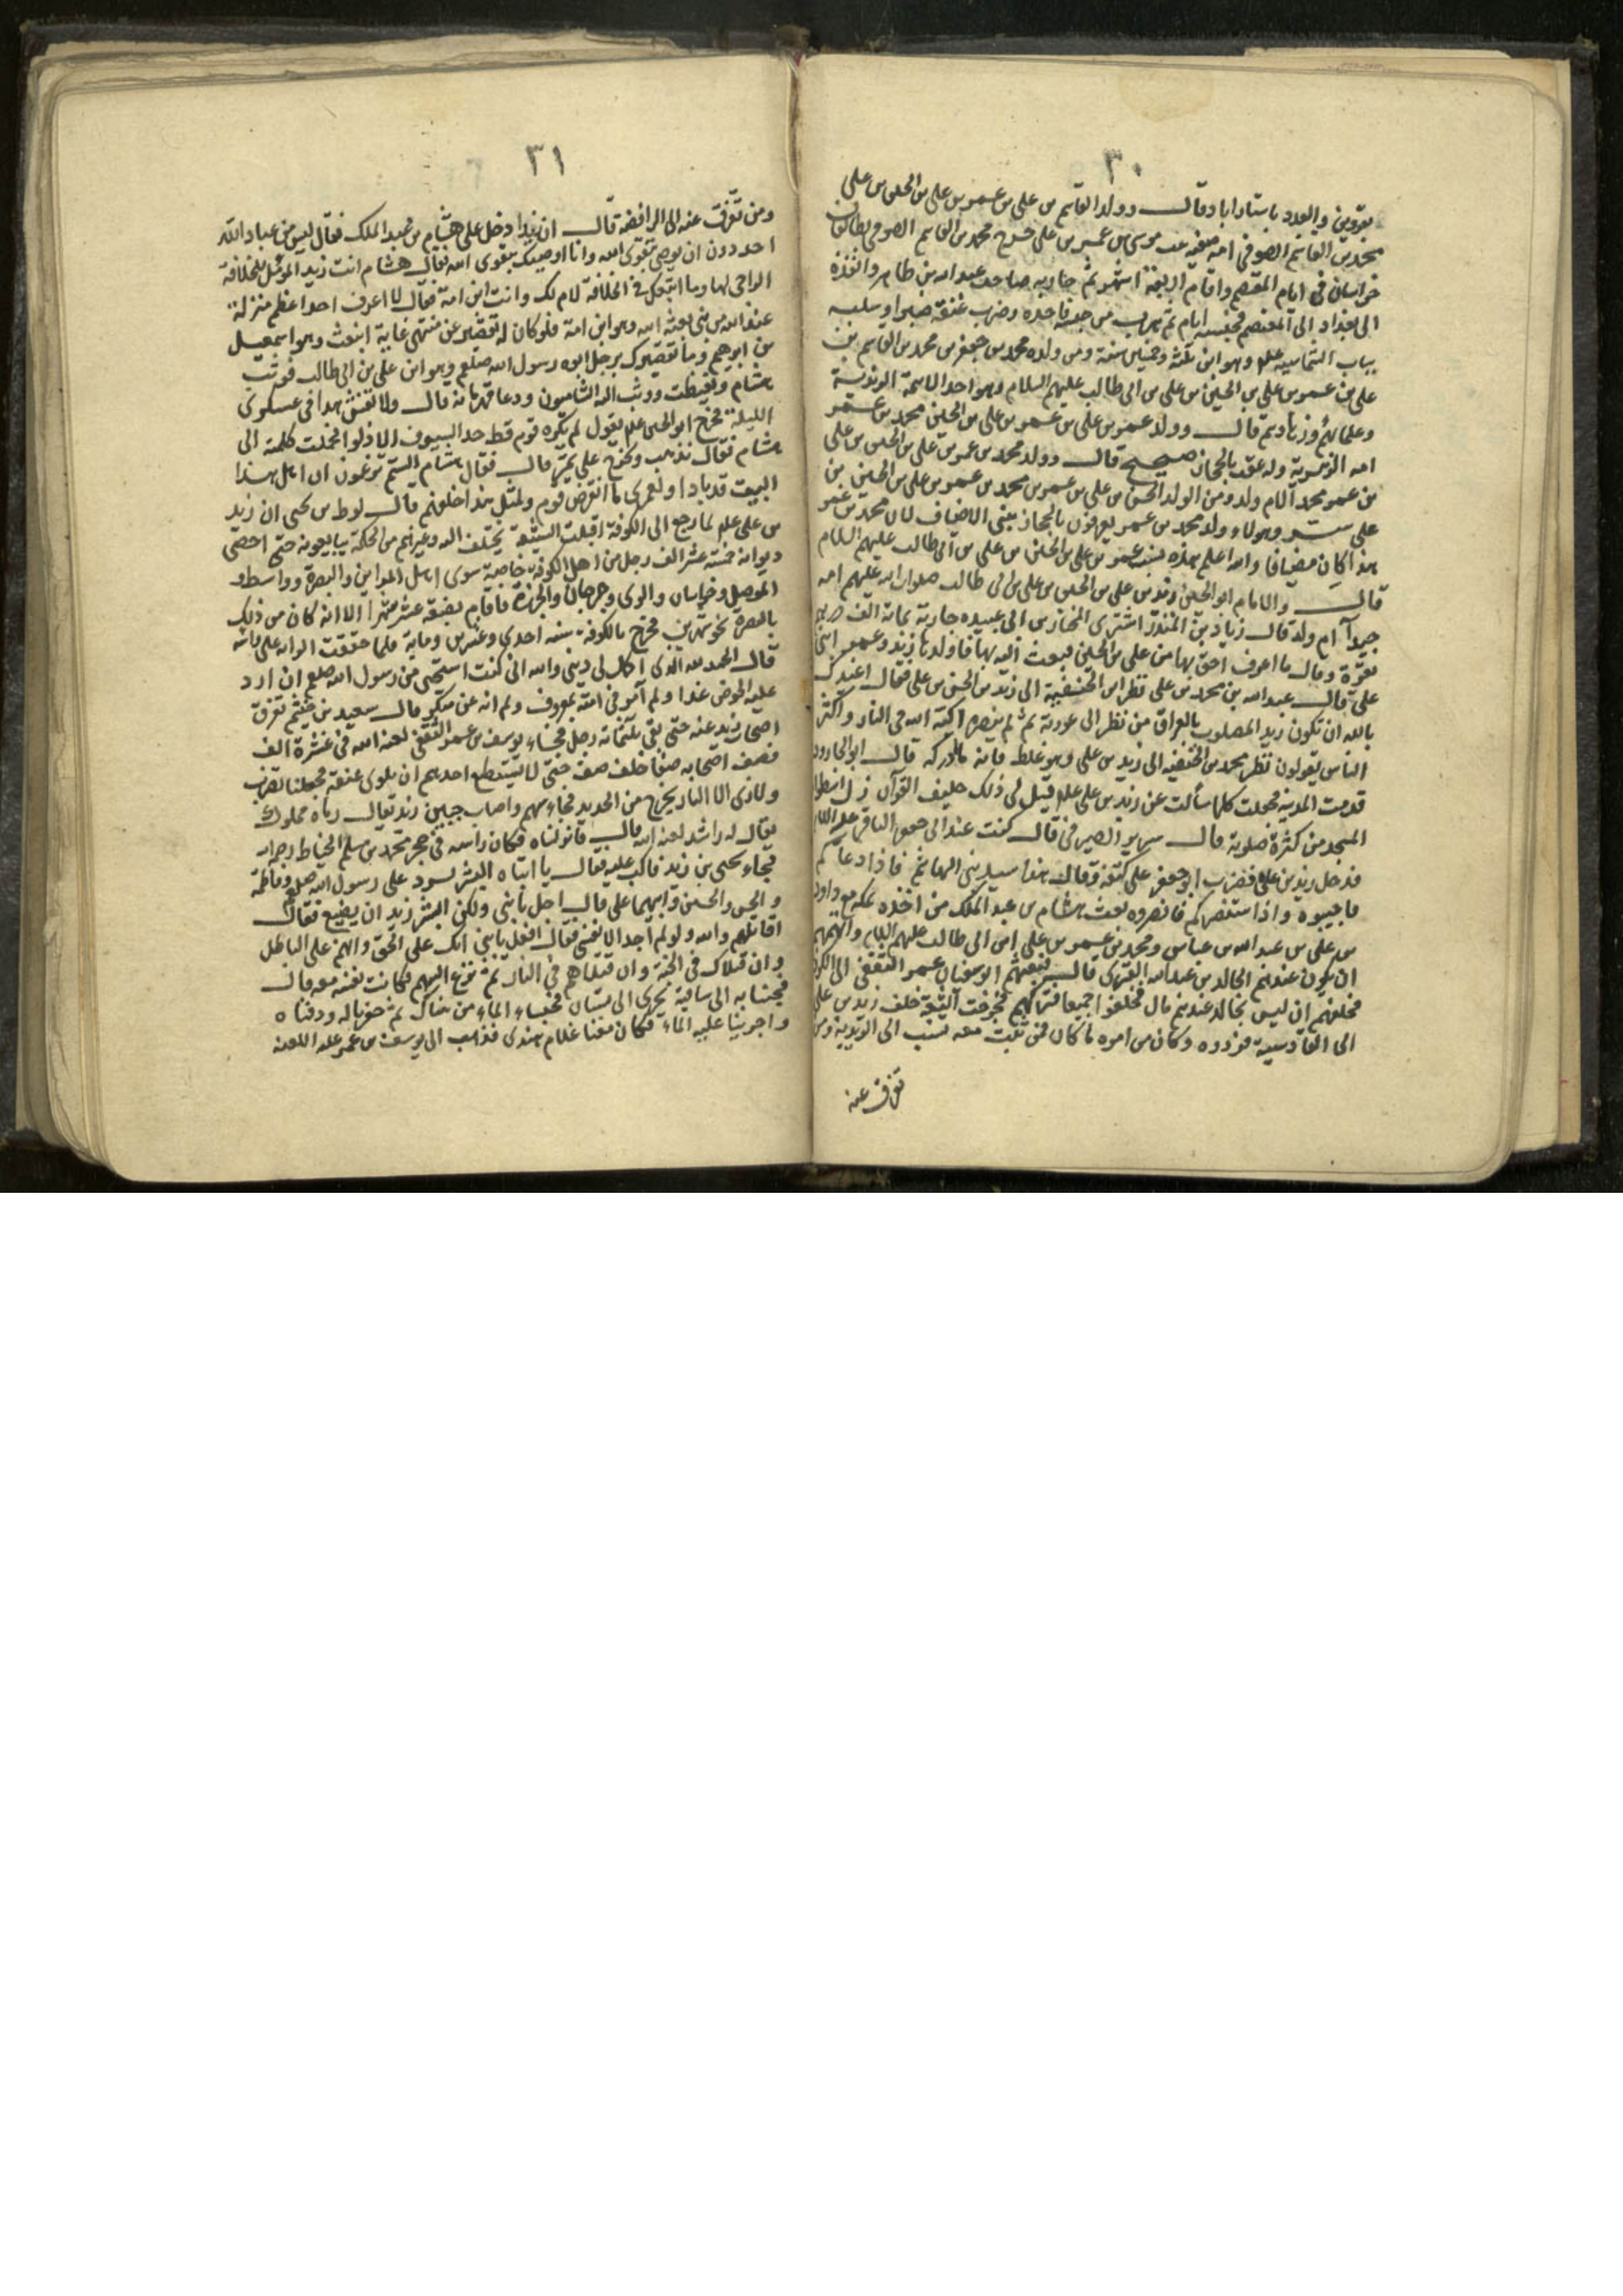 ٣٠
بقزوين والعدد باستراباد قال وولد القاسم بن علي بن عمر بن علي بن الحسين بن علي
محمد بن القاسم الصوفي امه صفيه بنت موسى بن عمر بن علي خرج محمد بن القاسم الصوفي بطالقان
خراسان في ايام المعتصم واقام اربعة اشهر ثم حاربه صاحب عبد الله بن طاهر وانفذه
الى بغداد الى المعتصم فحبسه ايام ثم هرب من حبسه فاخذه وضرب عنقه صبرا وصلبه
بباب الشماسيه وهو ابن ثلثة وخمسين سنة ومن ولده محمد بن جعفر بن محمد بن القاسم بن
علي بن عمر بن علي بن الحسين بن علي بن ابي طالب عليهم السلام وهو احد الائمة الزيدية
وعلمائهم وزهادهم قال وولد عمر بن علي بن عمر بن علي بن الحسين محمد بن عمر
امه النوبية وله عقب بالحجاز صحيح قال وولد محمد بن عمر بن علي بن الحسين بن علي
بن عمر محمدا لام ولد ومن الولد الحسن بن علي بن عمر بن محمد بن عمر بن علي بن الحسين بن
علي ستر وهولاء ولد محمد بن عمر يعرفون بالحجاز ببني الاضياف لان محمد بن عمر
هذا كان مضيافا والله اعلم بهذه نسب عمر بن علي بن الحسين بن علي بن ابي طالب عليهم السلام
قال والامام ابو الحسين زيد بن علي بن الحسين بن علي بن ابي طالب صلوات الله عليهم امه
جيدا ام ولد قال زياد بن المنذر اشترى المختار بن ابي عبيده جارية بمائة الف درهم
بغرة وقال ما اعرف احق بها من علي بن الحسين فبعث اليه بها فاولدها زيد وعمر ابني
علي قال عبد الله بن محمد بن علي نظر ابن الحنفية الى زيد بن الحسن بن علي فقال اعيذك
بالله ان تكون زيد المصلوب بالعراق من نظر الى عورته ثم لم ينصره اكبه الله في النار واكثر
الناس يقولون نظر محمد بن الحنفيه الى زيد بن علي وهو غلط فانه ما ادركه قال ابو الجارود
قدمت المدينة فجعلت كلما سألت عن زيد بن علي عله قيل لي ذلك حليف القرآن ذلك اسطوانة
المسجد من كثرة صلوته قال سدير الصيرفي قال كنت عند ابي جعفر الباقر عليه السلام
فدخل زيد بن علي فضرب ابو جعفر على كتفه وقال هذا سيد بني الهاشم فاذا دعاكم
فاجيبوه واذا استنصركم فانصروه بعث هشام بن عبد الملك من اخذه بمكه مع داود
بن علي بن عبد الله بن عباس ومحمد بن عمر بن علي ابن ابي طالب عليهم السلام واتهمهم
ان يكون عندهم لخالد بن عبد الله القسري قال فبعثهم ابو سفيان عمر الثقفي الى الكوفة
فحلفهم ان ليس لخالد عندهم مال فحلفوا جميعا فتركهم فخرجت الشيعة خلف زيد بن علي
الى القادسية فردوه وكان من امره ما كان فمن ثبت معه نسب الى الزيدية ومن
تفرق عنه
٣١
ومن تفرق عنه الى الرافضة قال ان زيدا دخل على هشام بن عبد الملك فقال ليس من عباد الله
احد دون ان يوصى بتقوى الله وانا اوصيك بتقوى الله فقال هشام انت زيد المؤمل للخلافة
الراجي لها وما انت والخلافة لا ام لك وانت ابن امة فقال لا اعرف احدا اعظم منزلة
عند الله من نبي بعثه الله وهو ابن امة فلو كان له تقصير عن منتهى غاية لم يبعث وهو اسمعيل
بن ابرهيم وما تقصيرك برجل ابوه رسول الله صلعم وهو ابن علي بن ابي طالب فوثب
هشام وتغيظت ووثب اليه الشاميون ودعا قهرمانه قال ولا تفتش هذا في عسكري
الليلة فخرج ابو الحسين عله يقول لم يكره قوم قط حد السيوف الا ذلوا فحملت كلمته الى
هشام فقال تذهب وتخرج علي بمر قال فقال هشام الستم تزعمون ان اهل هذا
البيت قد بادوا ولعمري ما انقرض قوم ولمثل هذا خلفهم قال لوط بن يحيى ان زيد
بن علي عله لما رجع الى الكوفة اقبلت الشيعة تختلف اليه وغيرهم من المحكمة يبايعونه حتى احصى
ديوانه خمسة عشر الف رجل من اهل الكوفة خاصة سوى اهل المداين والبصرة وواسط و
الموصل وخراسان والري وجرجان والجزيرة فاقام بضعة عشر شهرا الا انه كان من ذلك
بالبصرة نحو شهرين فخرج بالكوفة سنه احدى وعشرين ومايه فلما خفقت الراية على راسه
قال الحمد لله الذي اكمل لي ديني والله اني كنت استحيي من رسول الله صلعم ان ارد
عليه الحوض غدا ولم آمر في امته بمعروف ولم انه عن منكر قال سعيد بن خثيم تفرق
اصحاب زيد عنه حتى بقي ثلثمائة رجل فجاء يوسف بن عمر الثقفي لعنه الله في عشرة الف
فصف اصحابه صفا خلف صف حتى لا يستطيع احدهم ان يلوي عنقه فجعلنا نضرب
ولا نرى الا النار تخرج من الحديد فجاء سهم واصاب جبين زيد يقال رماه مملوك
يقال له راشد لعنه الله قال فانزلناه فكان راسه في حجر محمد بن مسلم الخياط
فجاء يحيى بن زيد فاكب عليه فقال يا ابتاه ابشر ترد على رسول الله صلعم وفاطمة
والحسن والحسين وابيهما علي قال اجل يا بني ولكن اي شيء تريد ان تصنع فقال
اقاتلهم والله ولو لم اجد الا نفسي فقال افعل يا بني انك على الحق وانهم على الباطل
وان قتلاك في الجنة وان قتلاهم في النار ثم نزع السهم فكانت نفسه معه قال
فجئنا به الى ساقية تجري الى بستان فحبسنا الماء من هناك ثم حفرنا له ودفناه
واجرينا عليه الماء فكان معنا غلام هندي فذهب الى يوسف بن عمر عليه اللعنة